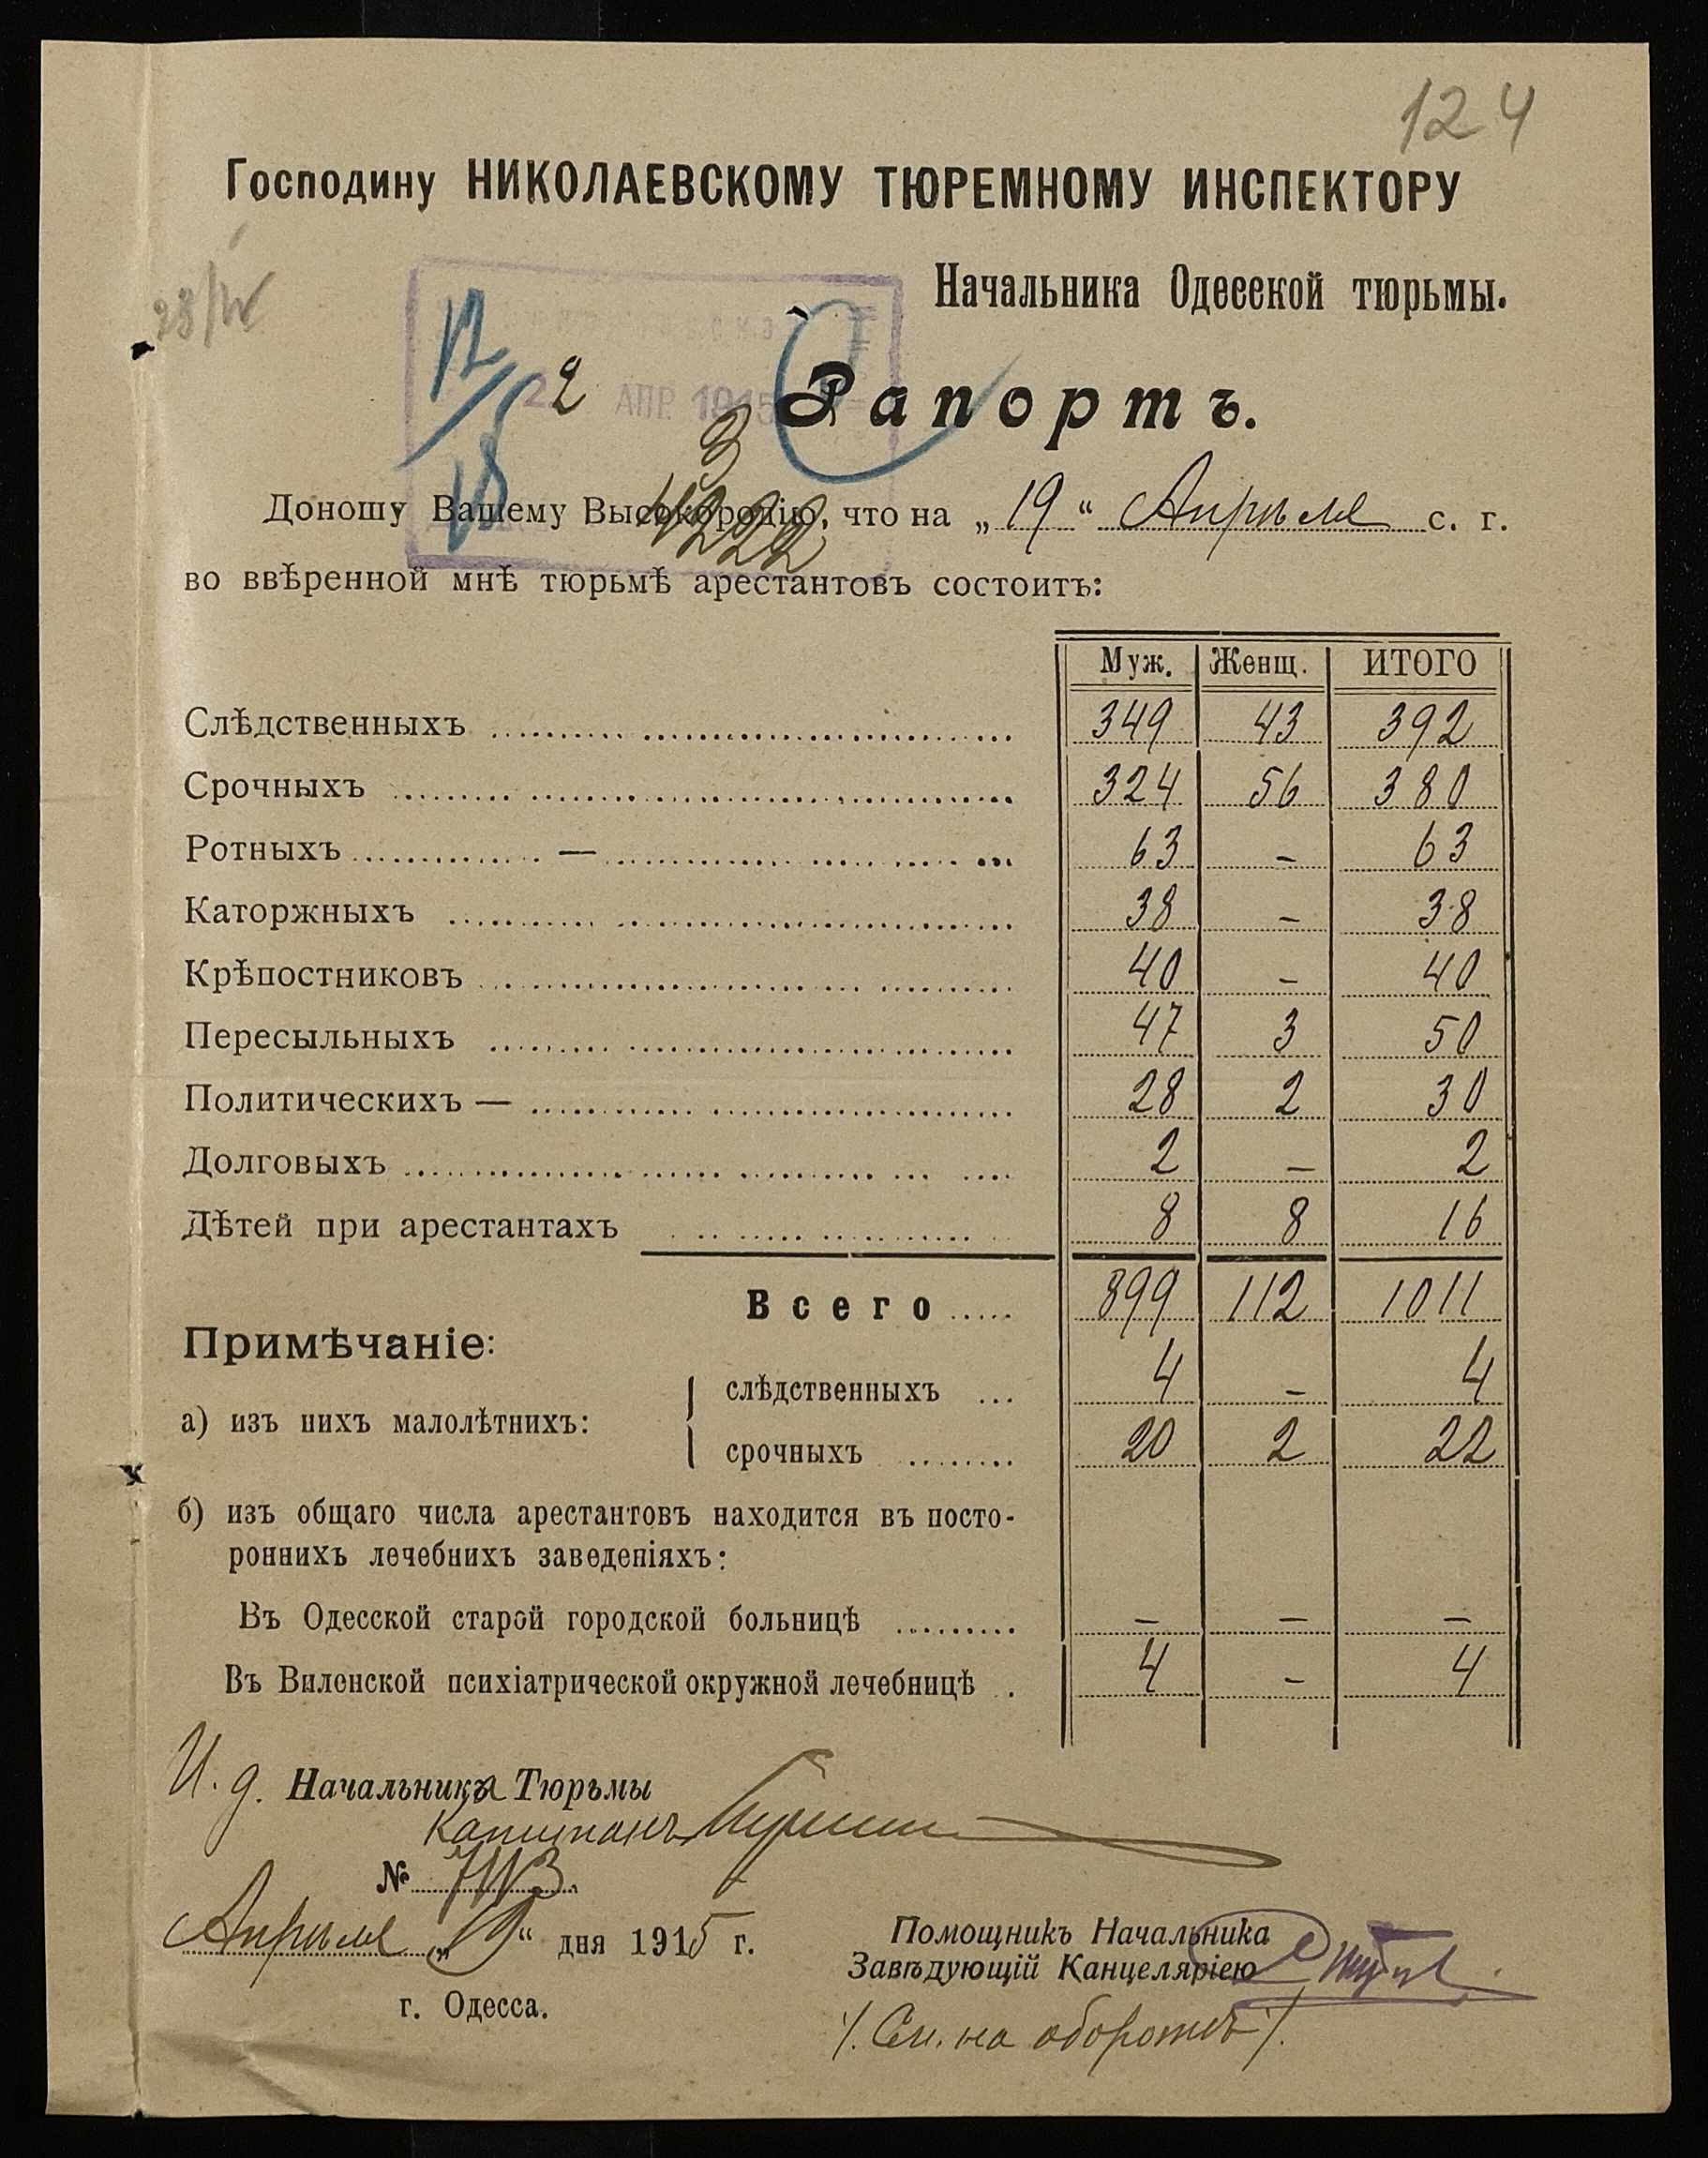 124
Господину НИКОЛАЕВСКОМУ ТЮРЕМНОМУ ИНСПЕКТОРУ
Начальника Одесской тюрьмы.
22 АПР. 1915
Рапортъ.
Доношу Вашему Высокородію, что на „19“ Апрѣля с. г.
во ввѣренной мнѣ тюрьмѣ арестантовъ состоитъ:
Муж. Женщ. ИТОГО
Слѣдственныхъ 349 43 392
Срочныхъ 324 56 380
Ротныхъ — 63 – 63
Каторжныхъ 38 – 38
Крѣпостниковъ 40 – 40
Пересыльныхъ 47 3 50
Политическихъ — 28 2 30
Долговыхъ 2 – 2
Дѣтей при арестантахъ 8 8 16
Всего 899 112 1011
Примѣчаніе:
слѣдственныхъ 4 – 4
а) изъ нихъ малолѣтнихъ:
срочныхъ 20 2 22
б) изъ общаго числа арестантовъ находится въ посто-
роннихъ лечебнихъ заведеніяхъ:
Въ Одесской старой городской больницѣ – – –
Въ Виленской психіатрической окружной лечебницѣ 4 – 4
И. д. Начальника Тюрьмы
Капитанъ
№
Апрѣля „19“ дня 1915 г.
г. Одесса.
Помощникъ Начальника
Завѣдующій Канцеляріею
/. См. на оборотѣ /.